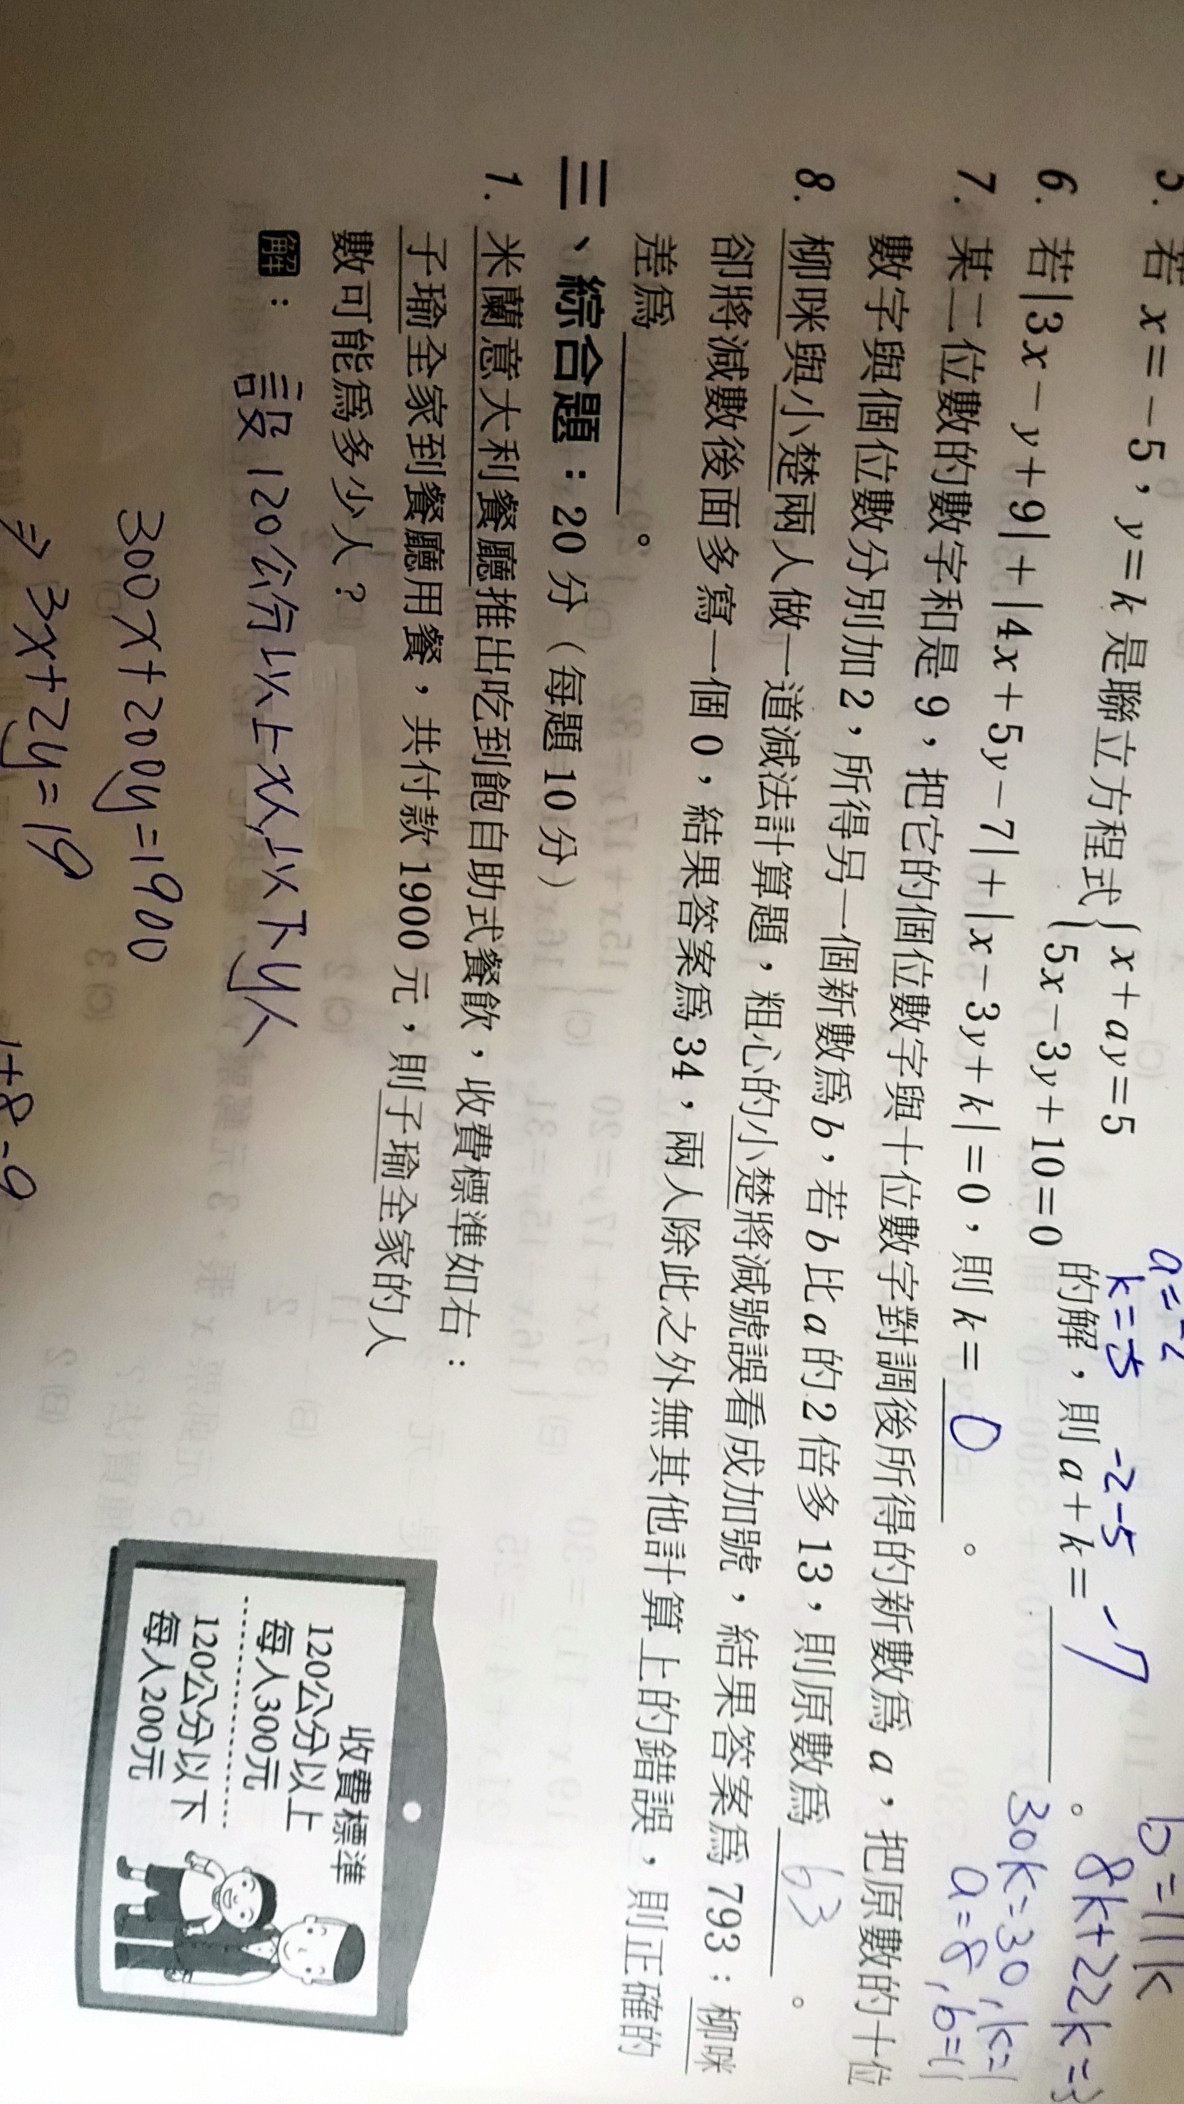 5. 若 x=-5，y=k 是聯立方程式 { x+ay=5
5x-3y+10=0 的解，則 a+k= -7 。
a=-2
k=-5
-2-5
b=11k
8k+22k=3
30k=30, k=1
a=8, b=11
6. 若|3x-y+9|+|4x+5y-7|+|x-3y+k|=0，則 k= 0 。
7. 某二位數的數字和是 9，把它的個位數字與十位數字對調後所得的新數為 a，把原數的十位
數字與個位數分別加 2，所得另一個新數為 b，若 b 比 a 的 2 倍多 13，則原數為 63 。
8. 柳咪與小楚兩人做一道減法計算題，粗心的小楚將減號誤看成加號，結果答案為 793；柳咪
卻將減數後面多寫一個 0，結果答案為 34，兩人除此之外無其他計算上的錯誤，則正確的
差為 。
三、綜合題：20 分（每題 10 分）
1. 米蘭意大利餐廳推出吃到飽自助式餐飲，收費標準如右：
子瑜全家到餐廳用餐，共付款 1900 元，則子瑜全家的人
數可能為多少人？
收費標準
120公分以上
每人300元
120公分以下
每人200元
解：設120公分以上x人,以下y人
300x+200y=1900
⇒3x+2y=19
1+8=9